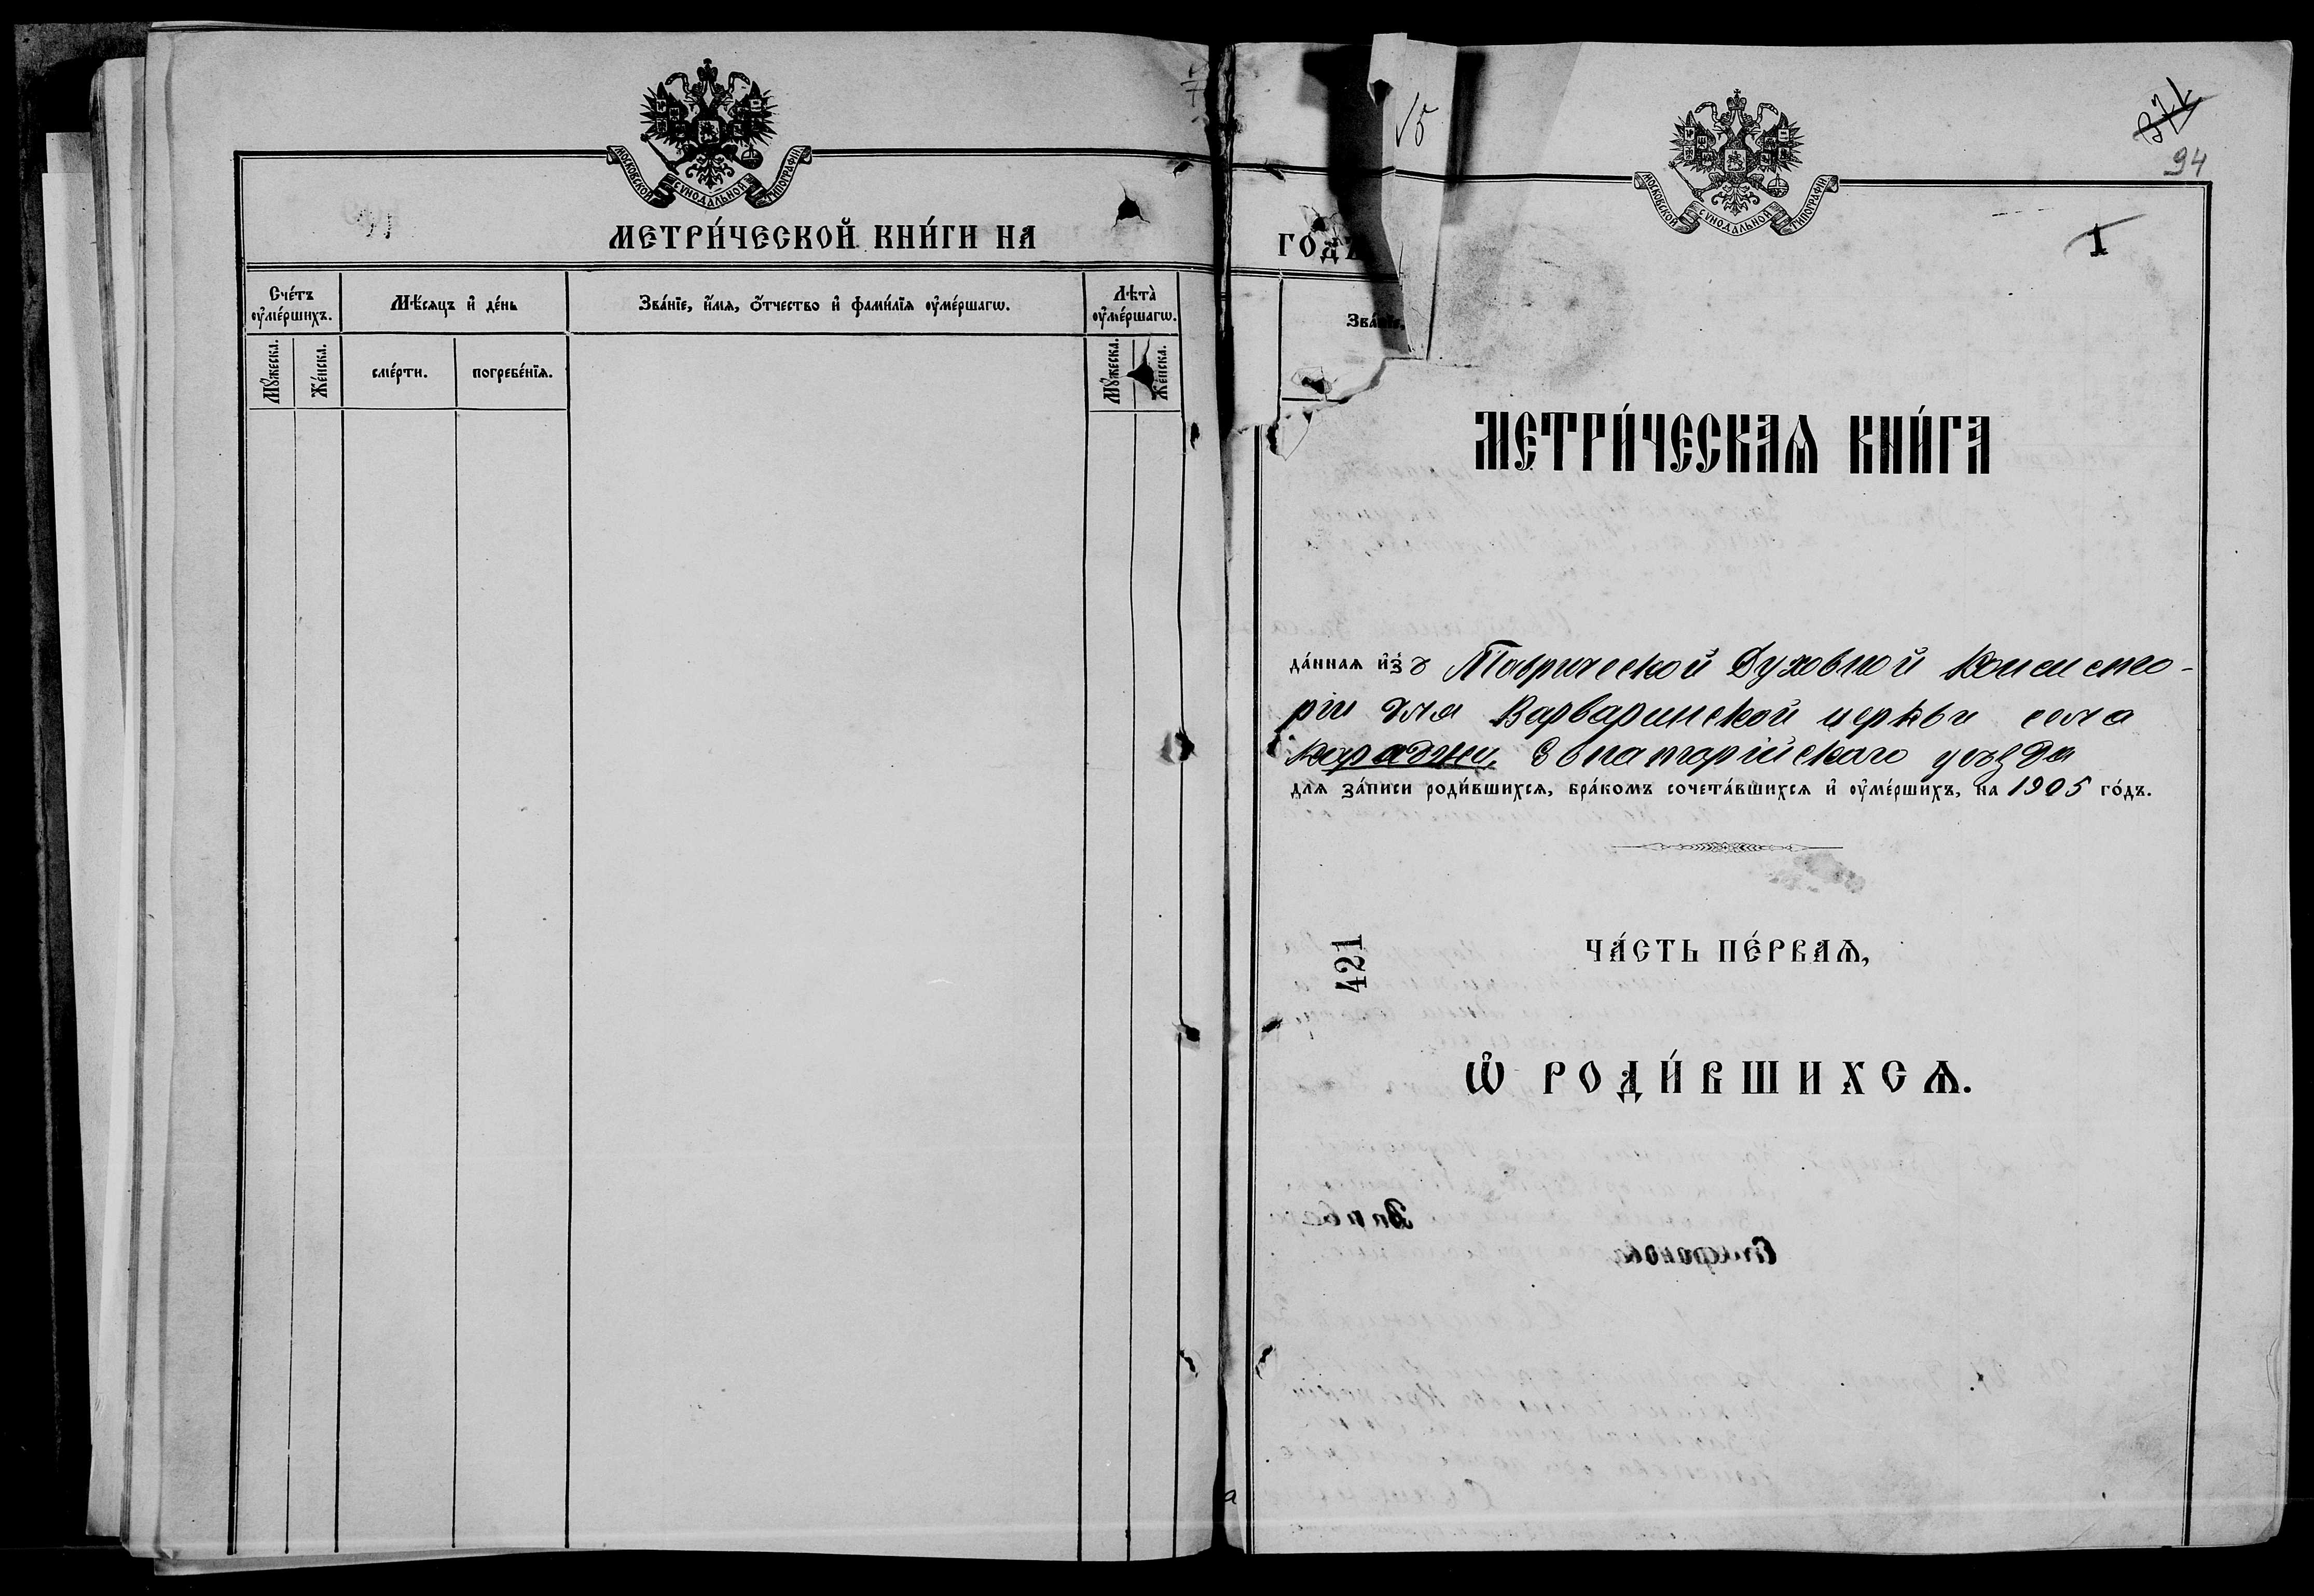 МОСКОВСКОЙ СѴНОДАЛЬНОЙ ТИПОГРАФІИ
МЕТРИ́ЧЕСКОЙ КНИ́ГИ НА
Сче́тъ ᲂу҆ме́ршихъ.
Мѣ́сяцъ и҆ де́нь
Зва́нїе, и҆́мѧ, ѻ҆́тчество и҆ фами́лїѧ ᲂу҆ме́ршагѡ.
Лѣта̀ ᲂу҆ме́ршагѡ.
Мꙋ́жеска.
Же́нска.
сме́рти.
погребе́нїѧ.
Мꙋ́жеска.
Же́нска.
ГОДЪ
Зва́нїе,
15
371
94
МОСКОВСКОЙ СѴНОДАЛЬНОЙ ТИПОГРАФІИ
1
МЕТРИ́ЧЕСКАѦ КНИ́ГА
да́ннаѧ и҆зъ Таврической Духовной Консисто-
ріи для Варваринской церкви села
Караджи, Евпаторійскаго уѣзда
для за́писи роди́вшихсѧ, бра́комъ сочета́вшихсѧ и҆ ᲂу҆ме́ршихъ, на 1905 го́дъ.
421
ЧА́СТЬ ПЕ́РВАѦ,
Ѽ РОДИ́ВШИХСѦ.